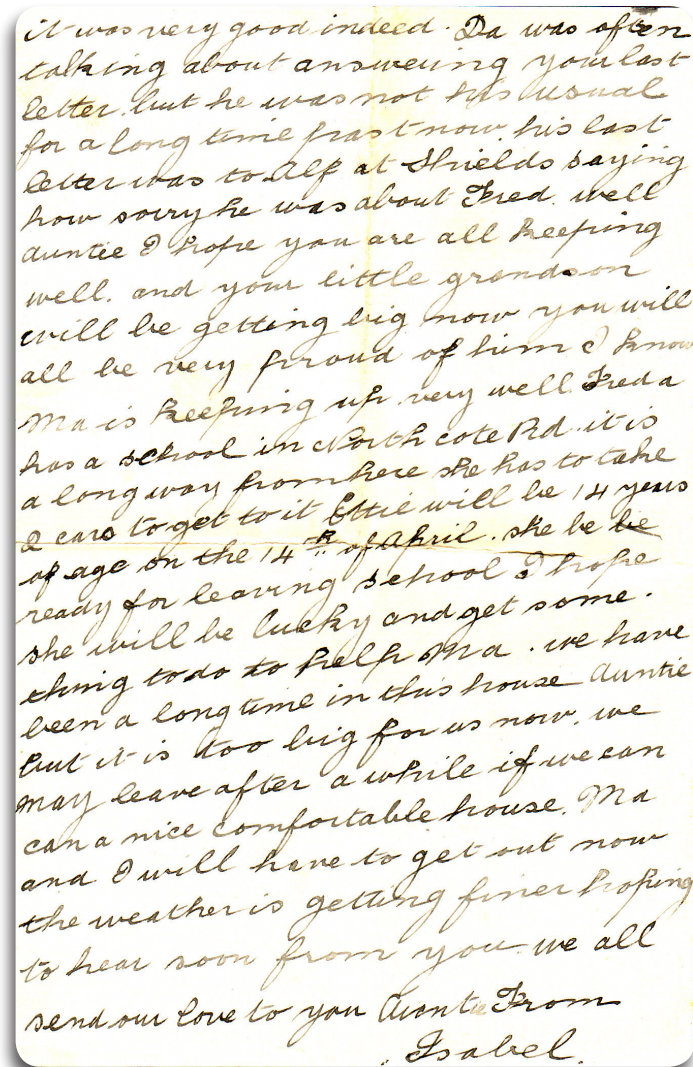 it was very good indeed. Da was often
talking about answering your last
letter. but he was not his usual
for a long time past now. his last
letter was to Alf at Shields saying
how sorry he was about Fred. well
auntie I hope you are all keeping
well. and your little grandson
will be getting big now you will
all be very proud of him I know
Ma is keeping up very well Freda
has a school in North cote Rd. it is
a long way from here she has to take
2 cars to get to it Ettie will be 14 years
of age on the 14th of April. she be be
ready for leaving school I hope
she will be lucky and get some.
thing to do to help Ma. we have
been a long time in this house Auntie
but it is too big for us now. we
may leave after a while if we can
can a nice comfortable house. Ma
and I will have to get out now
the weather is getting finer hoping
to hear soon from you we all
send our love to you Auntie From
Isabel.